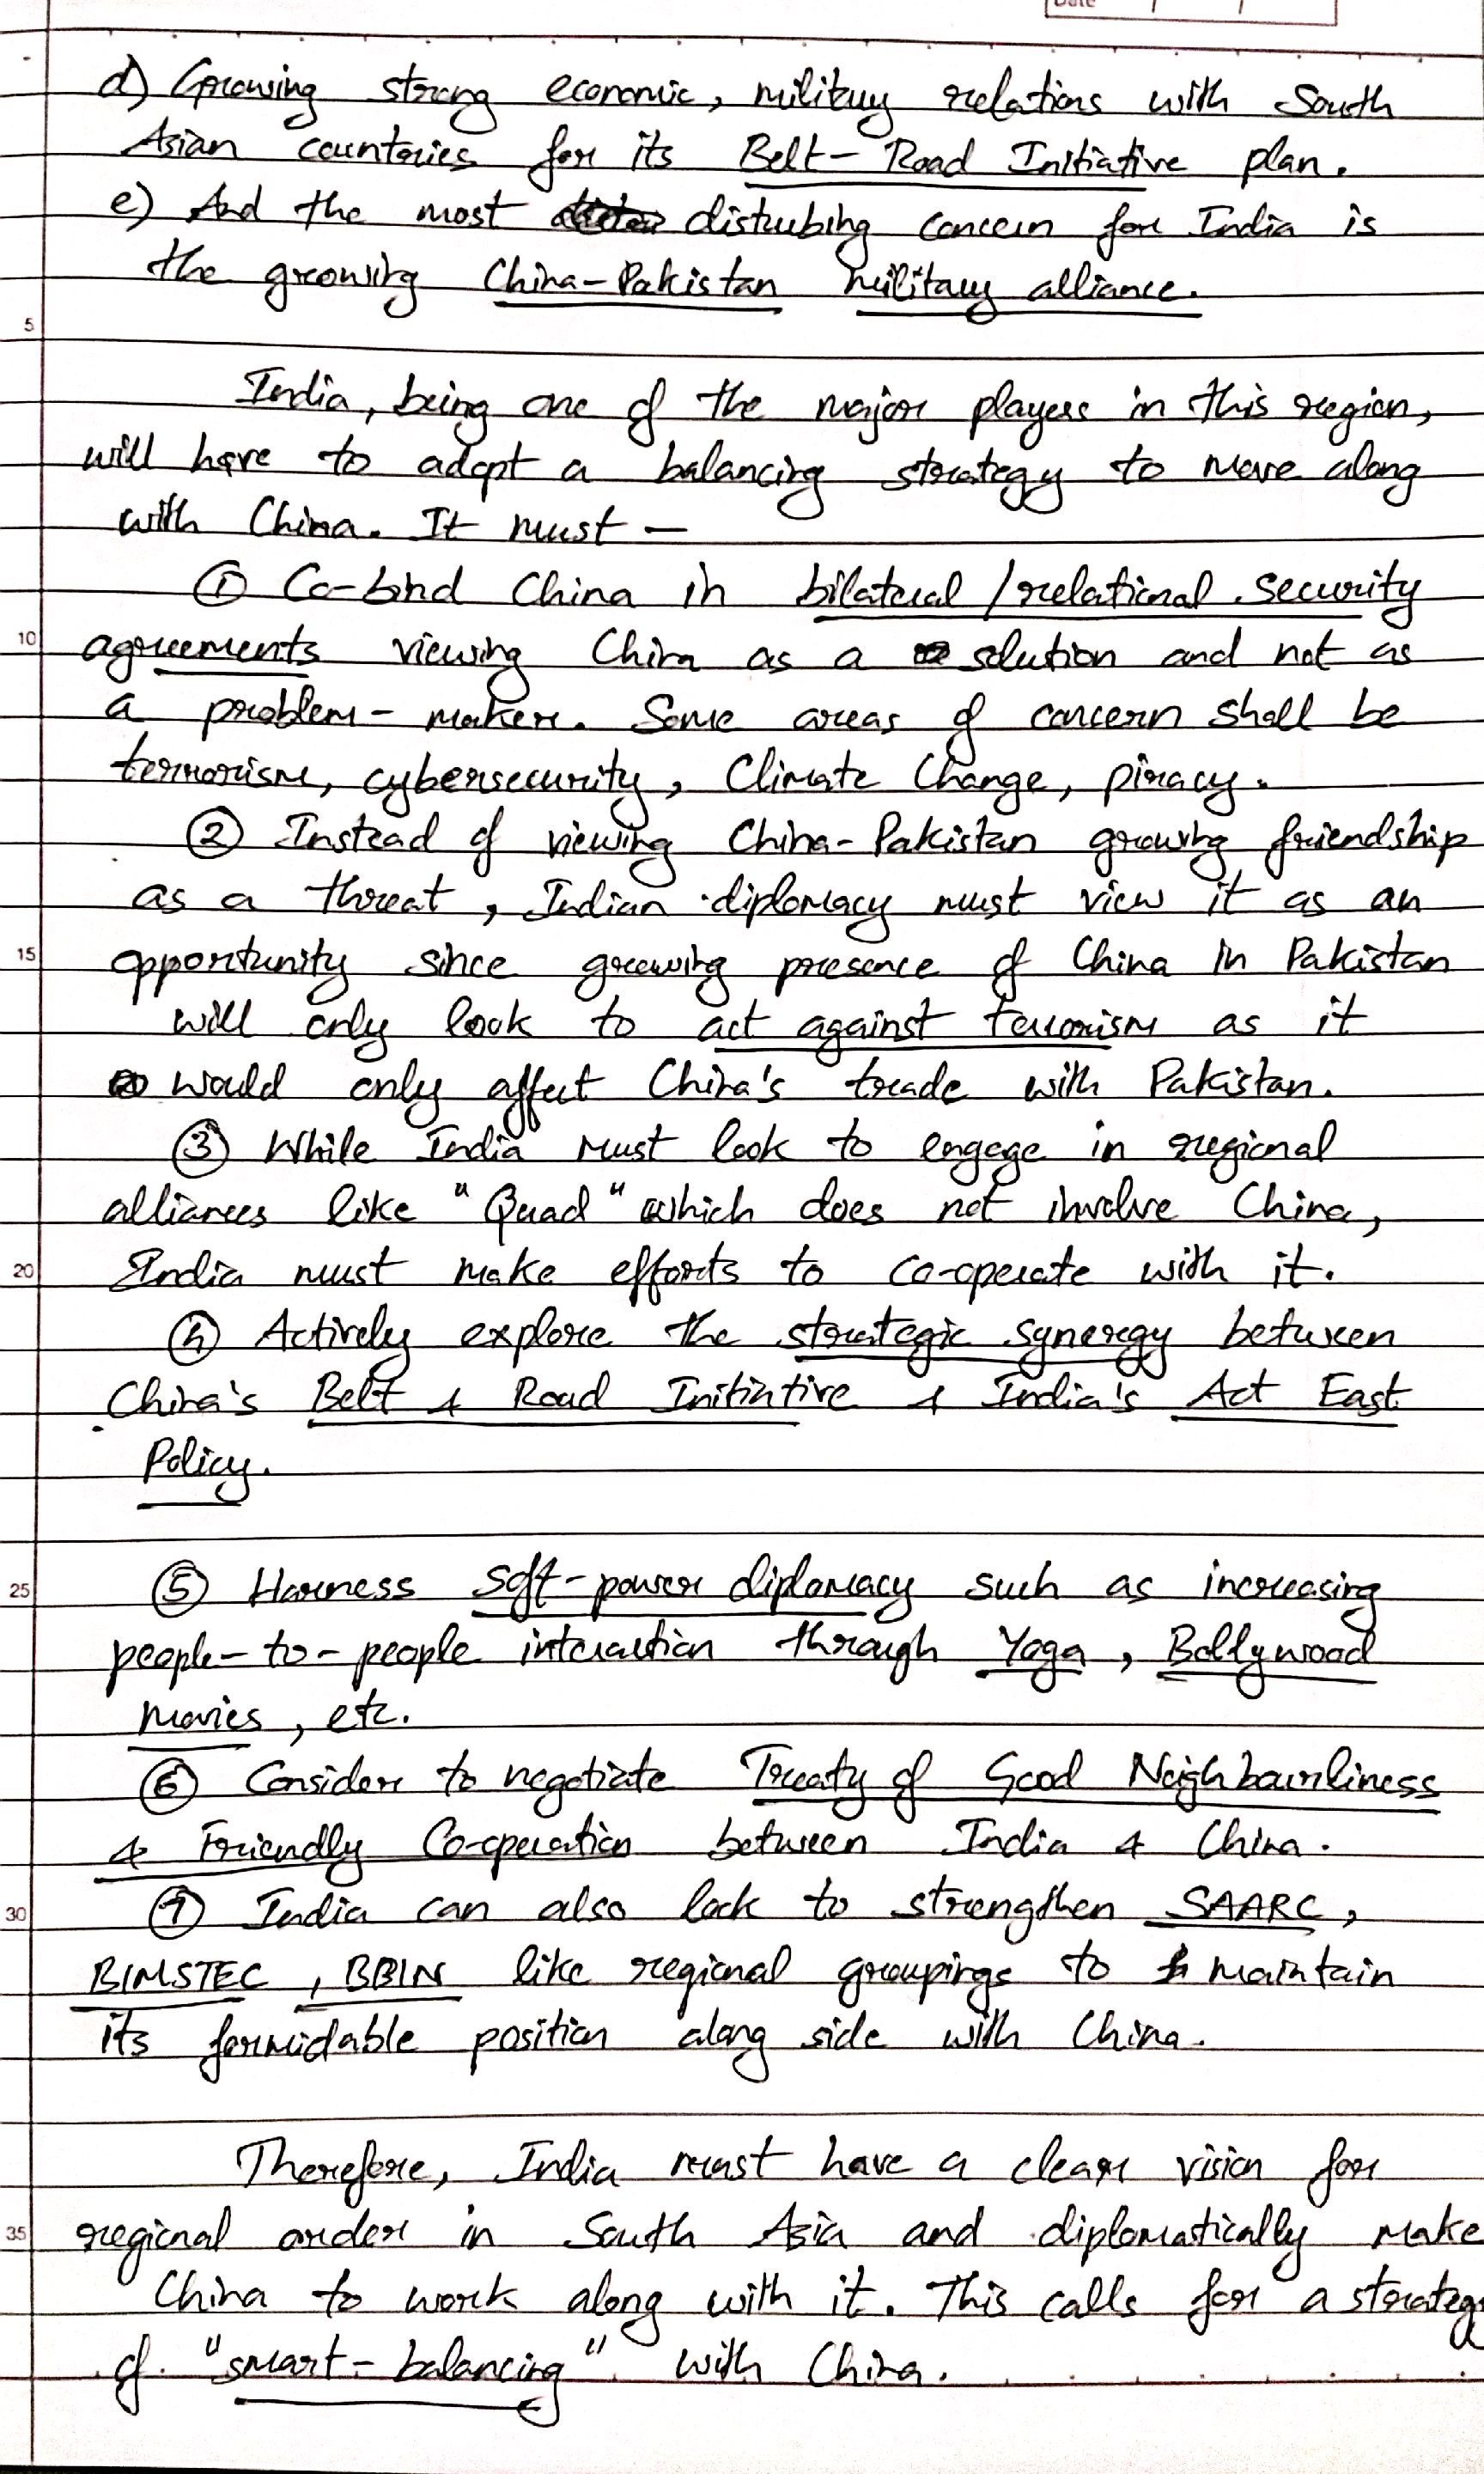 Date / /
d) Growing strong economic, military relations with South
Asian countries for its Belt-Road Initiative plan.
e) And the most disturbing concern for India is
the growing China-Pakistan military alliance.
5
India, being one of the major players in this region,
will have to adopt a balancing strategy to move along
with China. It must —
① Co-bind China in bilateral / relational security
10
agreements viewing China as a solution and not as
a problem-maker. Some areas of concern shall be
terrorism, cybersecurity, Climate Change, piracy.
② Instead of viewing China-Pakistan growing friendship
as a threat, Indian diplomacy must view it as an
15
opportunity since growing presence of China in Pakistan
will only look to act against terrorism as it
would only affect China's trade with Pakistan.
③ While India must look to engage in regional
alliances like "Quad" which does not involve China,
20
India must make efforts to co-operate with it.
④ Actively explore the strategic synergy between
China's Belt & Road Initiative & India's Act East
Policy.
25
⑤ Harness soft-power diplomacy such as increasing
people-to-people interaction through Yoga, Bollywood
movies, etc.
⑥ Consider to negotiate Treaty of Good Neighbourliness
& Friendly Co-operation between India & China.
30
⑦ India can also look to strengthen SAARC,
BIMSTEC, BBIN like regional groupings to maintain
its formidable position along side with China.
Therefore, India must have a clear vision for
35
regional order in South Asia and diplomatically make
China to work along with it. This calls for a strategy
of "smart-balancing" with China.